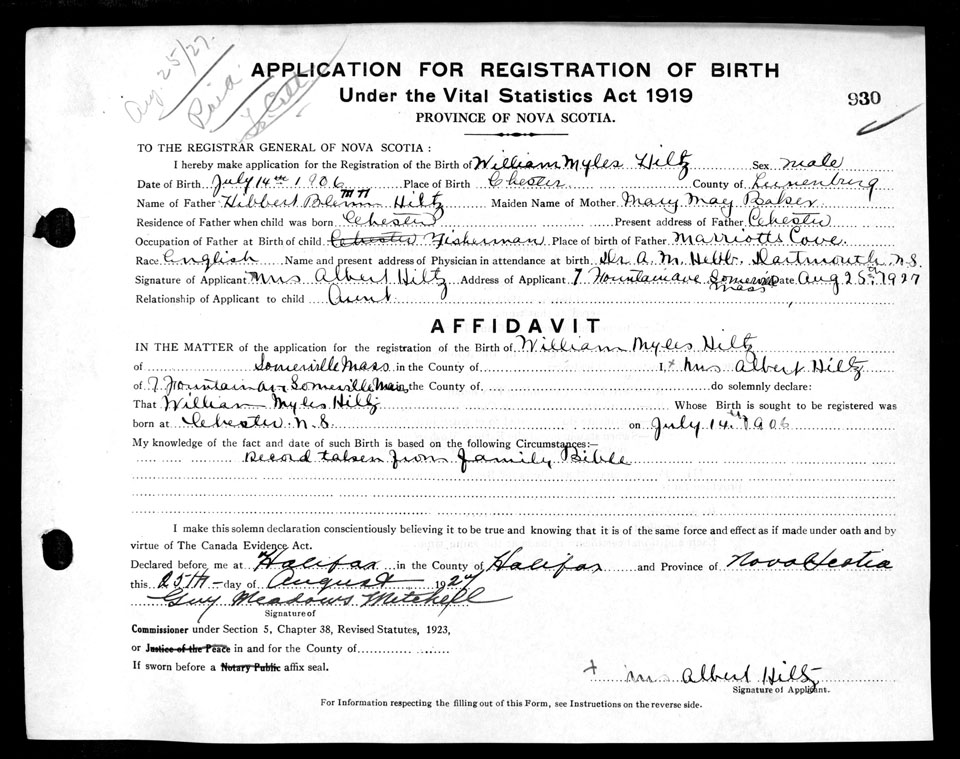 Aug. 25/27.
Paid
APPLICATION FOR REGISTRATION OF BIRTH
Under the Vital Statistics Act 1919
930
PROVINCE OF NOVA SCOTIA.
TO THE REGISTRAR GENERAL OF NOVA SCOTIA :
I hereby make application for the Registration of the Birth of William Myles Hiltz Sex male
Date of Birth July 14th 1906 Place of Birth Chester County of Lunenburg
Name of Father Hibbert Hiltz Maiden Name of Mother Mary May Baker
Residence of Father when child was born Chester Present address of Father Chester
Occupation of Father at Birth of child Chester Fisherman Place of birth of Father Marriotts Cove.
Race English Name and present address of Physician in attendance at birth Dr A. M. Hebb. Dartmouth N.S.
Signature of Applicant Mrs Albert Hiltz Address of Applicant 7 Fountain ave Somerville Mass Date Aug 25th 1927
Relationship of Applicant to child Aunt
AFFIDAVIT
IN THE MATTER of the application for the registration of the Birth of William Myles Hiltz
of Somerville Mass in the County of I, + Mrs Albert Hiltz
of 7 Fountain av Somerville Mass, the County of do solemnly declare:
That William Myles Hiltz Whose Birth is sought to be registered was
born at Chester N.S. on July 14th 1906
My knowledge of the fact and date of such Birth is based on the following Circumstances:—
Record taken from family Bible
I make this solemn declaration conscientiously believing it to be true and knowing that it is of the same force and effect as if made under oath and by
virtue of The Canada Evidence Act.
Declared before me at Halifax in the County of Halifax and Province of Nova Scotia
this 25th day of August 1927
Guy Meadows Mitchell
Signature of
Commissioner under Section 5, Chapter 38, Revised Statutes, 1923,
or Justice of the Peace in and for the County of
If sworn before a Notary Public affix seal.
+ Mrs Albert Hiltz
Signature of Applicant.
For Information respecting the filling out of this Form, see Instructions on the reverse side.